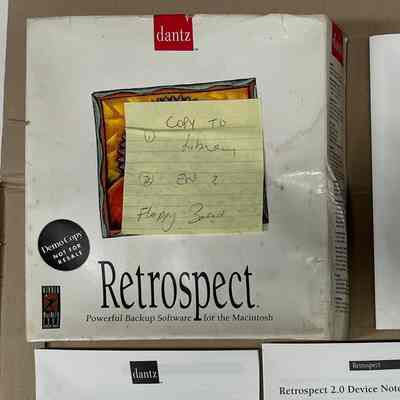 dantz
① COPY TO
Library
②
Floppy
Demo Copy
NOT FOR
RESALE
Retrospect™
Powerful Backup Software for the Macintosh
dantz
Retrospect
Retrospect 2.0 Device Note